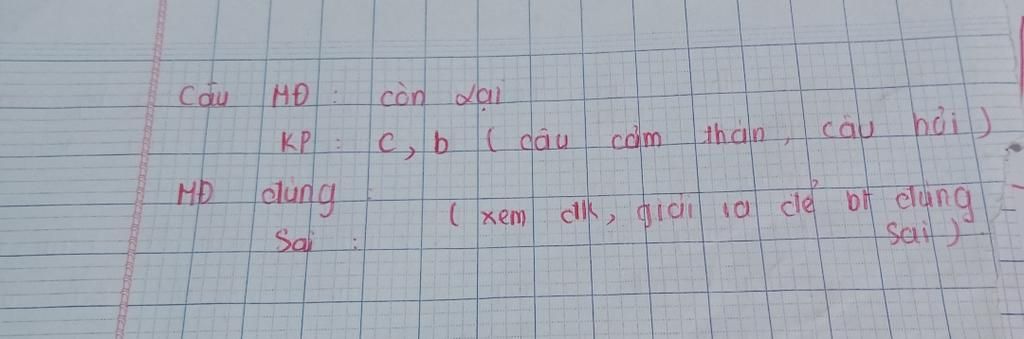 Câu MĐ : còn lại
KP : c, b ( câu cảm thán, câu hỏi )
MĐ đúng :
( xem đk, giải ra để bt đúng
Sai : sai )